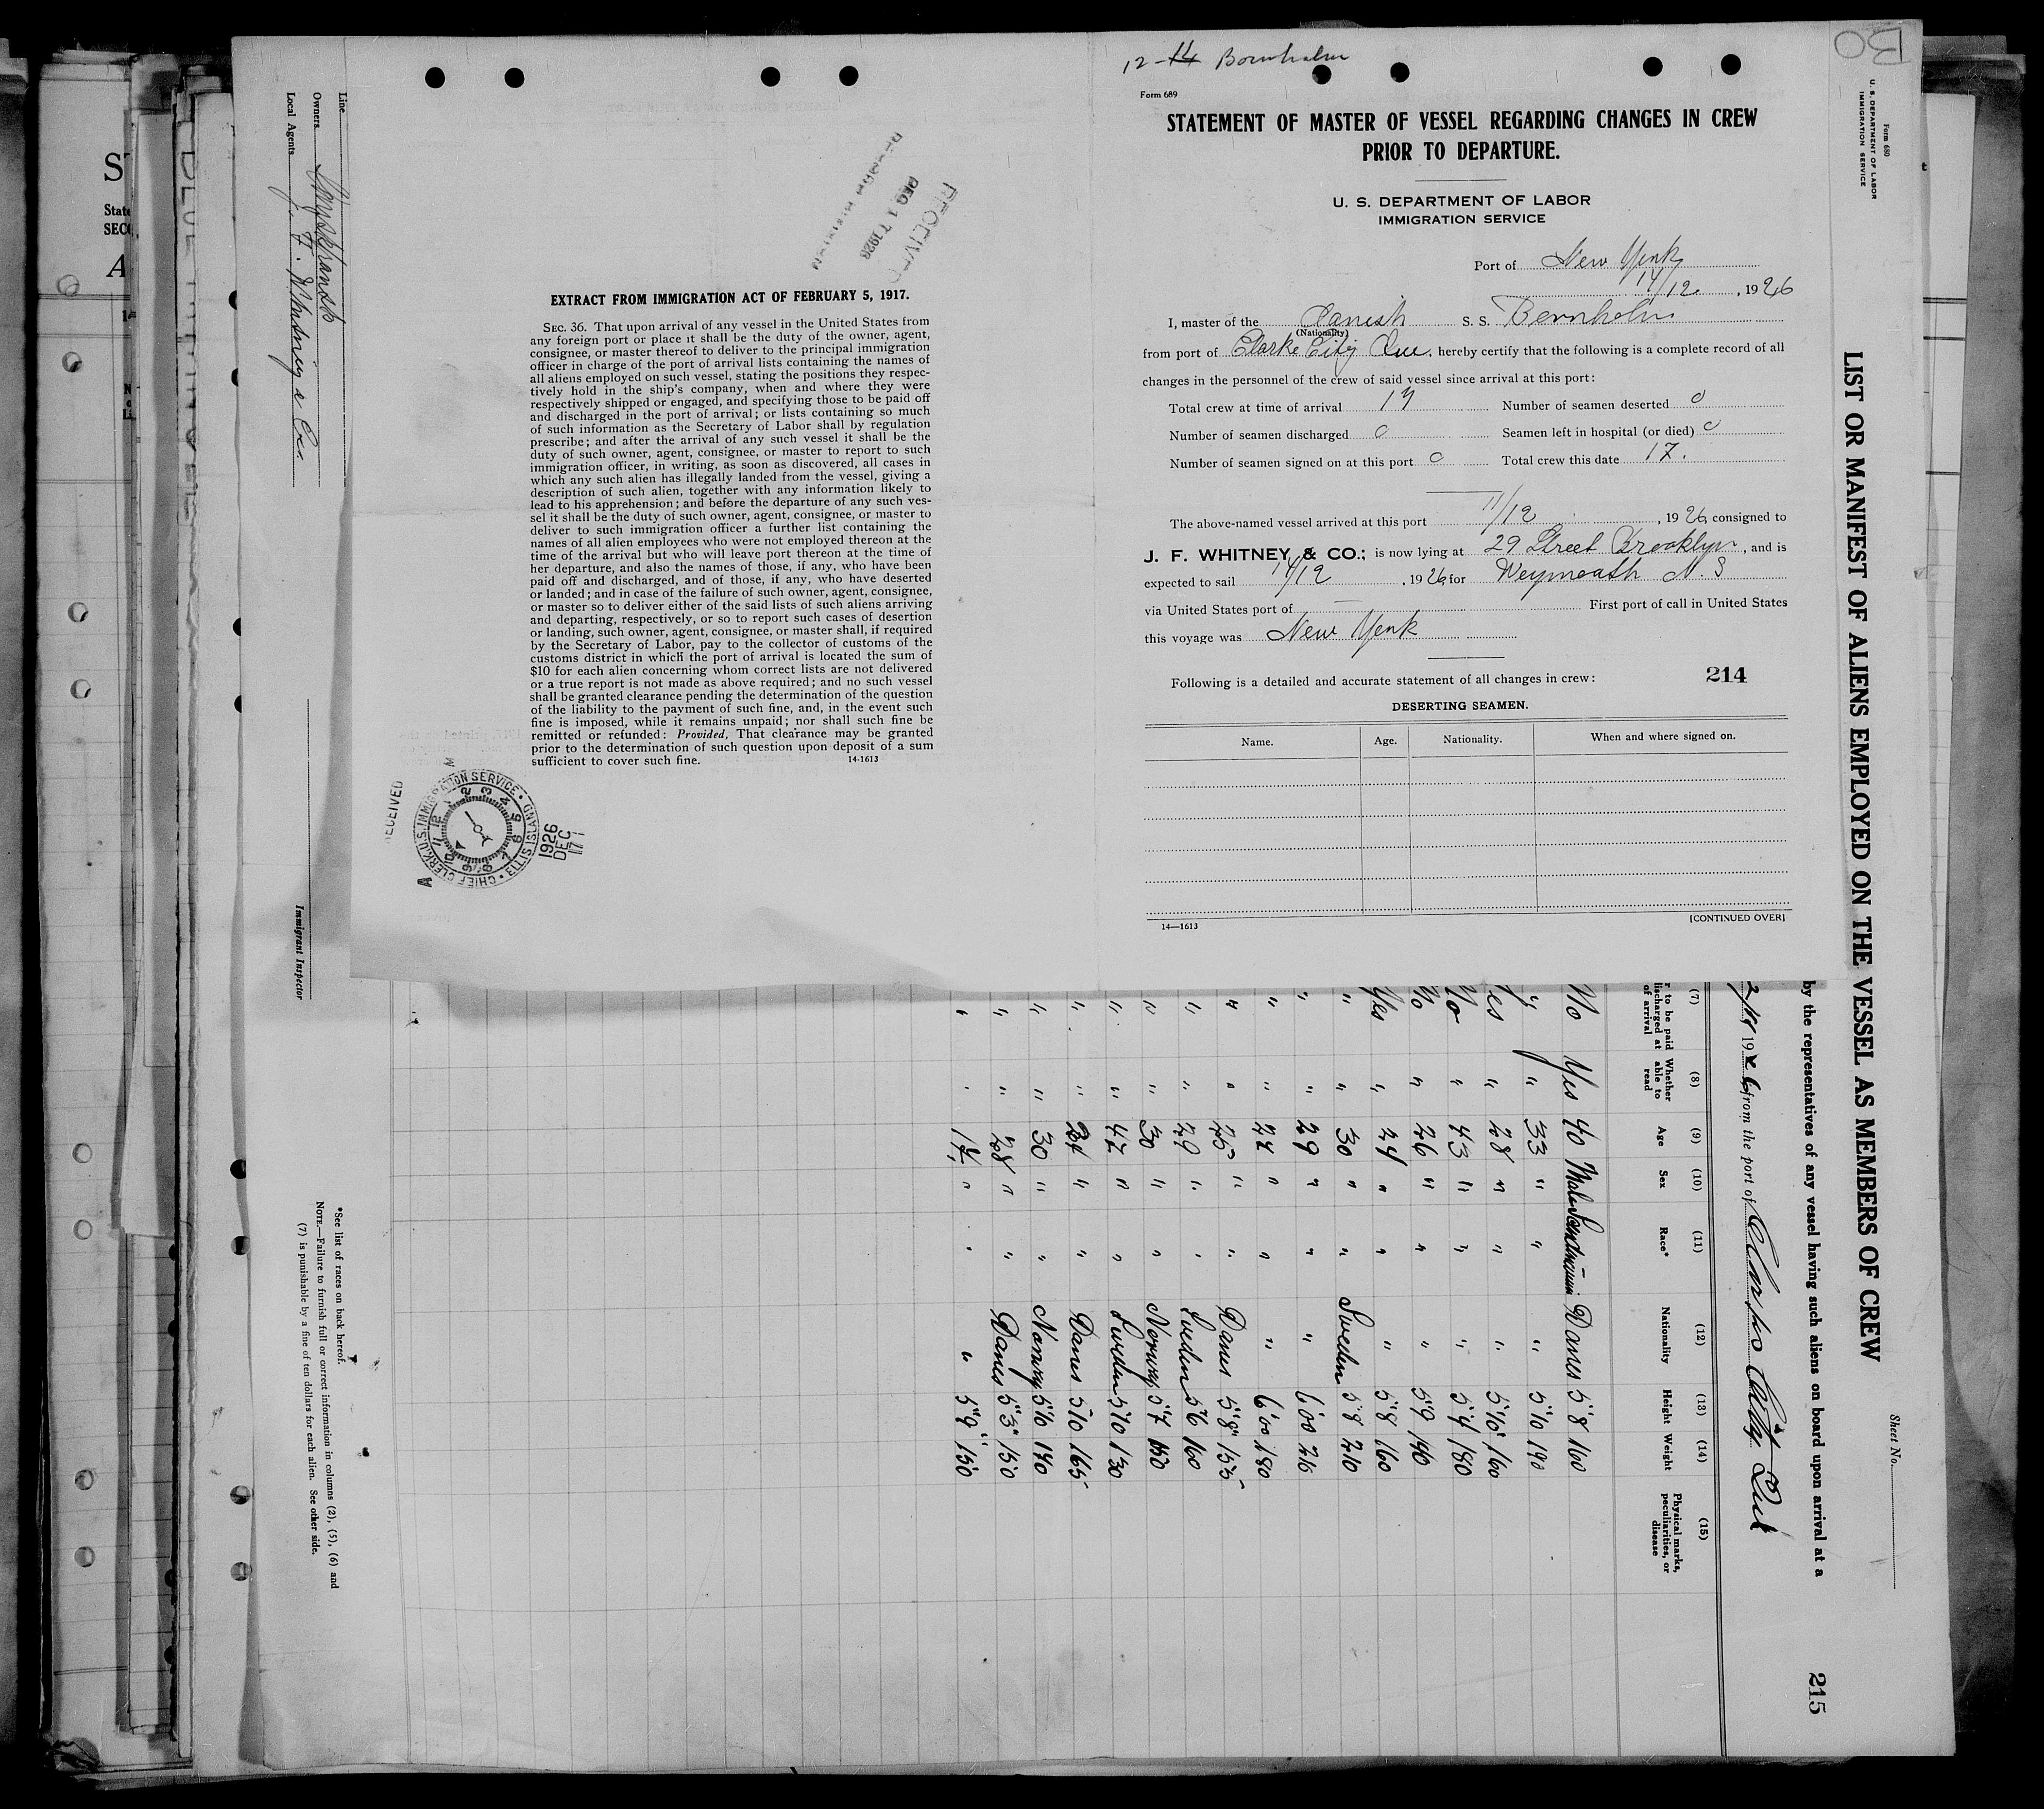 12-14 Bornholm
Form 689
STATEMENT OF MASTER OF VESSEL REGARDING CHANGES IN CREW
PRIOR TO DEPARTURE.
U. S. DEPARTMENT OF LABOR
IMMIGRATION SERVICE
Port of New York
14/12, 1926
I, master of the Danish S. S. Bornholm
(Nationality)
from port of Clarke City Que, hereby certify that the following is a complete record of all
changes in the personnel of the crew of said vessel since arrival at this port:
Total crew at time of arrival 17 Number of seamen deserted 0
Number of seamen discharged 0 Seamen left in hospital (or died) 0
Number of seamen signed on at this port 0 Total crew this date 17.
The above-named vessel arrived at this port 11/12, 1926, consigned to
J. F. WHITNEY & CO.; is now lying at 29 Street Brooklyn, and is
expected to sail 14/12, 1926, for Weymouth N. S
via United States port of — First port of call in United States
this voyage was New York
Following is a detailed and accurate statement of all changes in crew: 214
DESERTING SEAMEN.
Name. Age. Nationality. When and where signed on.
14—1613 [CONTINUED OVER]
RECEIVED
DEC 17 1926
RECORD DIVISION
EXTRACT FROM IMMIGRATION ACT OF FEBRUARY 5, 1917.
SEC. 36. That upon arrival of any vessel in the United States from
any foreign port or place it shall be the duty of the owner, agent,
consignee, or master thereof to deliver to the principal immigration
officer in charge of the port of arrival lists containing the names of
all aliens employed on such vessel, stating the positions they respec-
tively hold in the ship's company, when and where they were
respectively shipped or engaged, and specifying those to be paid off
and discharged in the port of arrival; or lists containing so much
of such information as the Secretary of Labor shall by regulation
prescribe; and after the arrival of any such vessel it shall be the
duty of such owner, agent, consignee, or master to report to such
immigration officer, in writing, as soon as discovered, all cases in
which any such alien has illegally landed from the vessel, giving a
description of such alien, together with any information likely to
lead to his apprehension; and before the departure of any such ves-
sel it shall be the duty of such owner, agent, consignee, or master to
deliver to such immigration officer a further list containing the
names of all alien employees who were not employed thereon at the
time of the arrival but who will leave port thereon at the time of
her departure, and also the names of those, if any, who have been
paid off and discharged, and of those, if any, who have deserted
or landed; and in case of the failure of such owner, agent, consignee,
or master so to deliver either of the said lists of such aliens arriving
and departing, respectively, or so to report such cases of desertion
or landing, such owner, agent, consignee, or master shall, if required
by the Secretary of Labor, pay to the collector of customs of the
customs district in which the port of arrival is located the sum of
$10 for each alien concerning whom correct lists are not delivered
or a true report is not made as above required; and no such vessel
shall be granted clearance pending the determination of the question
of the liability to the payment of such fine, and, in the event such
fine is imposed, while it remains unpaid; nor shall such fine be
remitted or refunded: Provided, That clearance may be granted
prior to the determination of such question upon deposit of a sum
sufficient to cover such fine. 14-1613
RECEIVED
CHIEF CLERK, U.S. IMMIGRATION SERVICE • ELLIS ISLAND
1926
DEC
17
Form 680
U. S. DEPARTMENT OF LABOR
IMMIGRATION SERVICE
Sheet No.
LIST OR MANIFEST OF ALIENS EMPLOYED ON THE VESSEL AS MEMBERS OF CREW
by the representatives of any vessel having such aliens on board upon arrival at a
1926 from the port of Clarke City Que
215
(7) (8) (9) (10) (11) (12) (13) (14) (15)
r to be paid discharged at of arrival Whether able to read Age Sex Race* Nationality Height Weight Physical marks, peculiarities, or disease
No Yes 40 Male Scandinavian Danes 5'8 160
" " 33 " " " 5'10 190
Yes " 28 " " " 5'10" 160
No " 43 " " " 5'7 180
No " 26 " " " 5'9 190
Yes " 24 " " " 5'8 160
" " 30 " " Sweden 5'8 210
" " 29 " " " 6'00 210
" " 22 " " " 6'00 180
" " 25 " " Danes 5'8" 155
" " 29 " " Sweden 5'6 160
" " 30 " " Norway 5'7 150
" " 42 " " Sweden 5'10 130
" " " " Danes 5'10 165
" " 30 " " Norway 5'10 190
" " 28 " " Danes 5'3" 150
" " " " " 5'9" 150
Line
Owners
Local Agents J. F. Whitney & Co.
Immigrant Inspector
*See list of races on back hereof.
NOTE.—Failure to furnish full or correct information in columns (2), (5), (6) and
(7) is punishable by a fine of ten dollars for each alien. See other side.